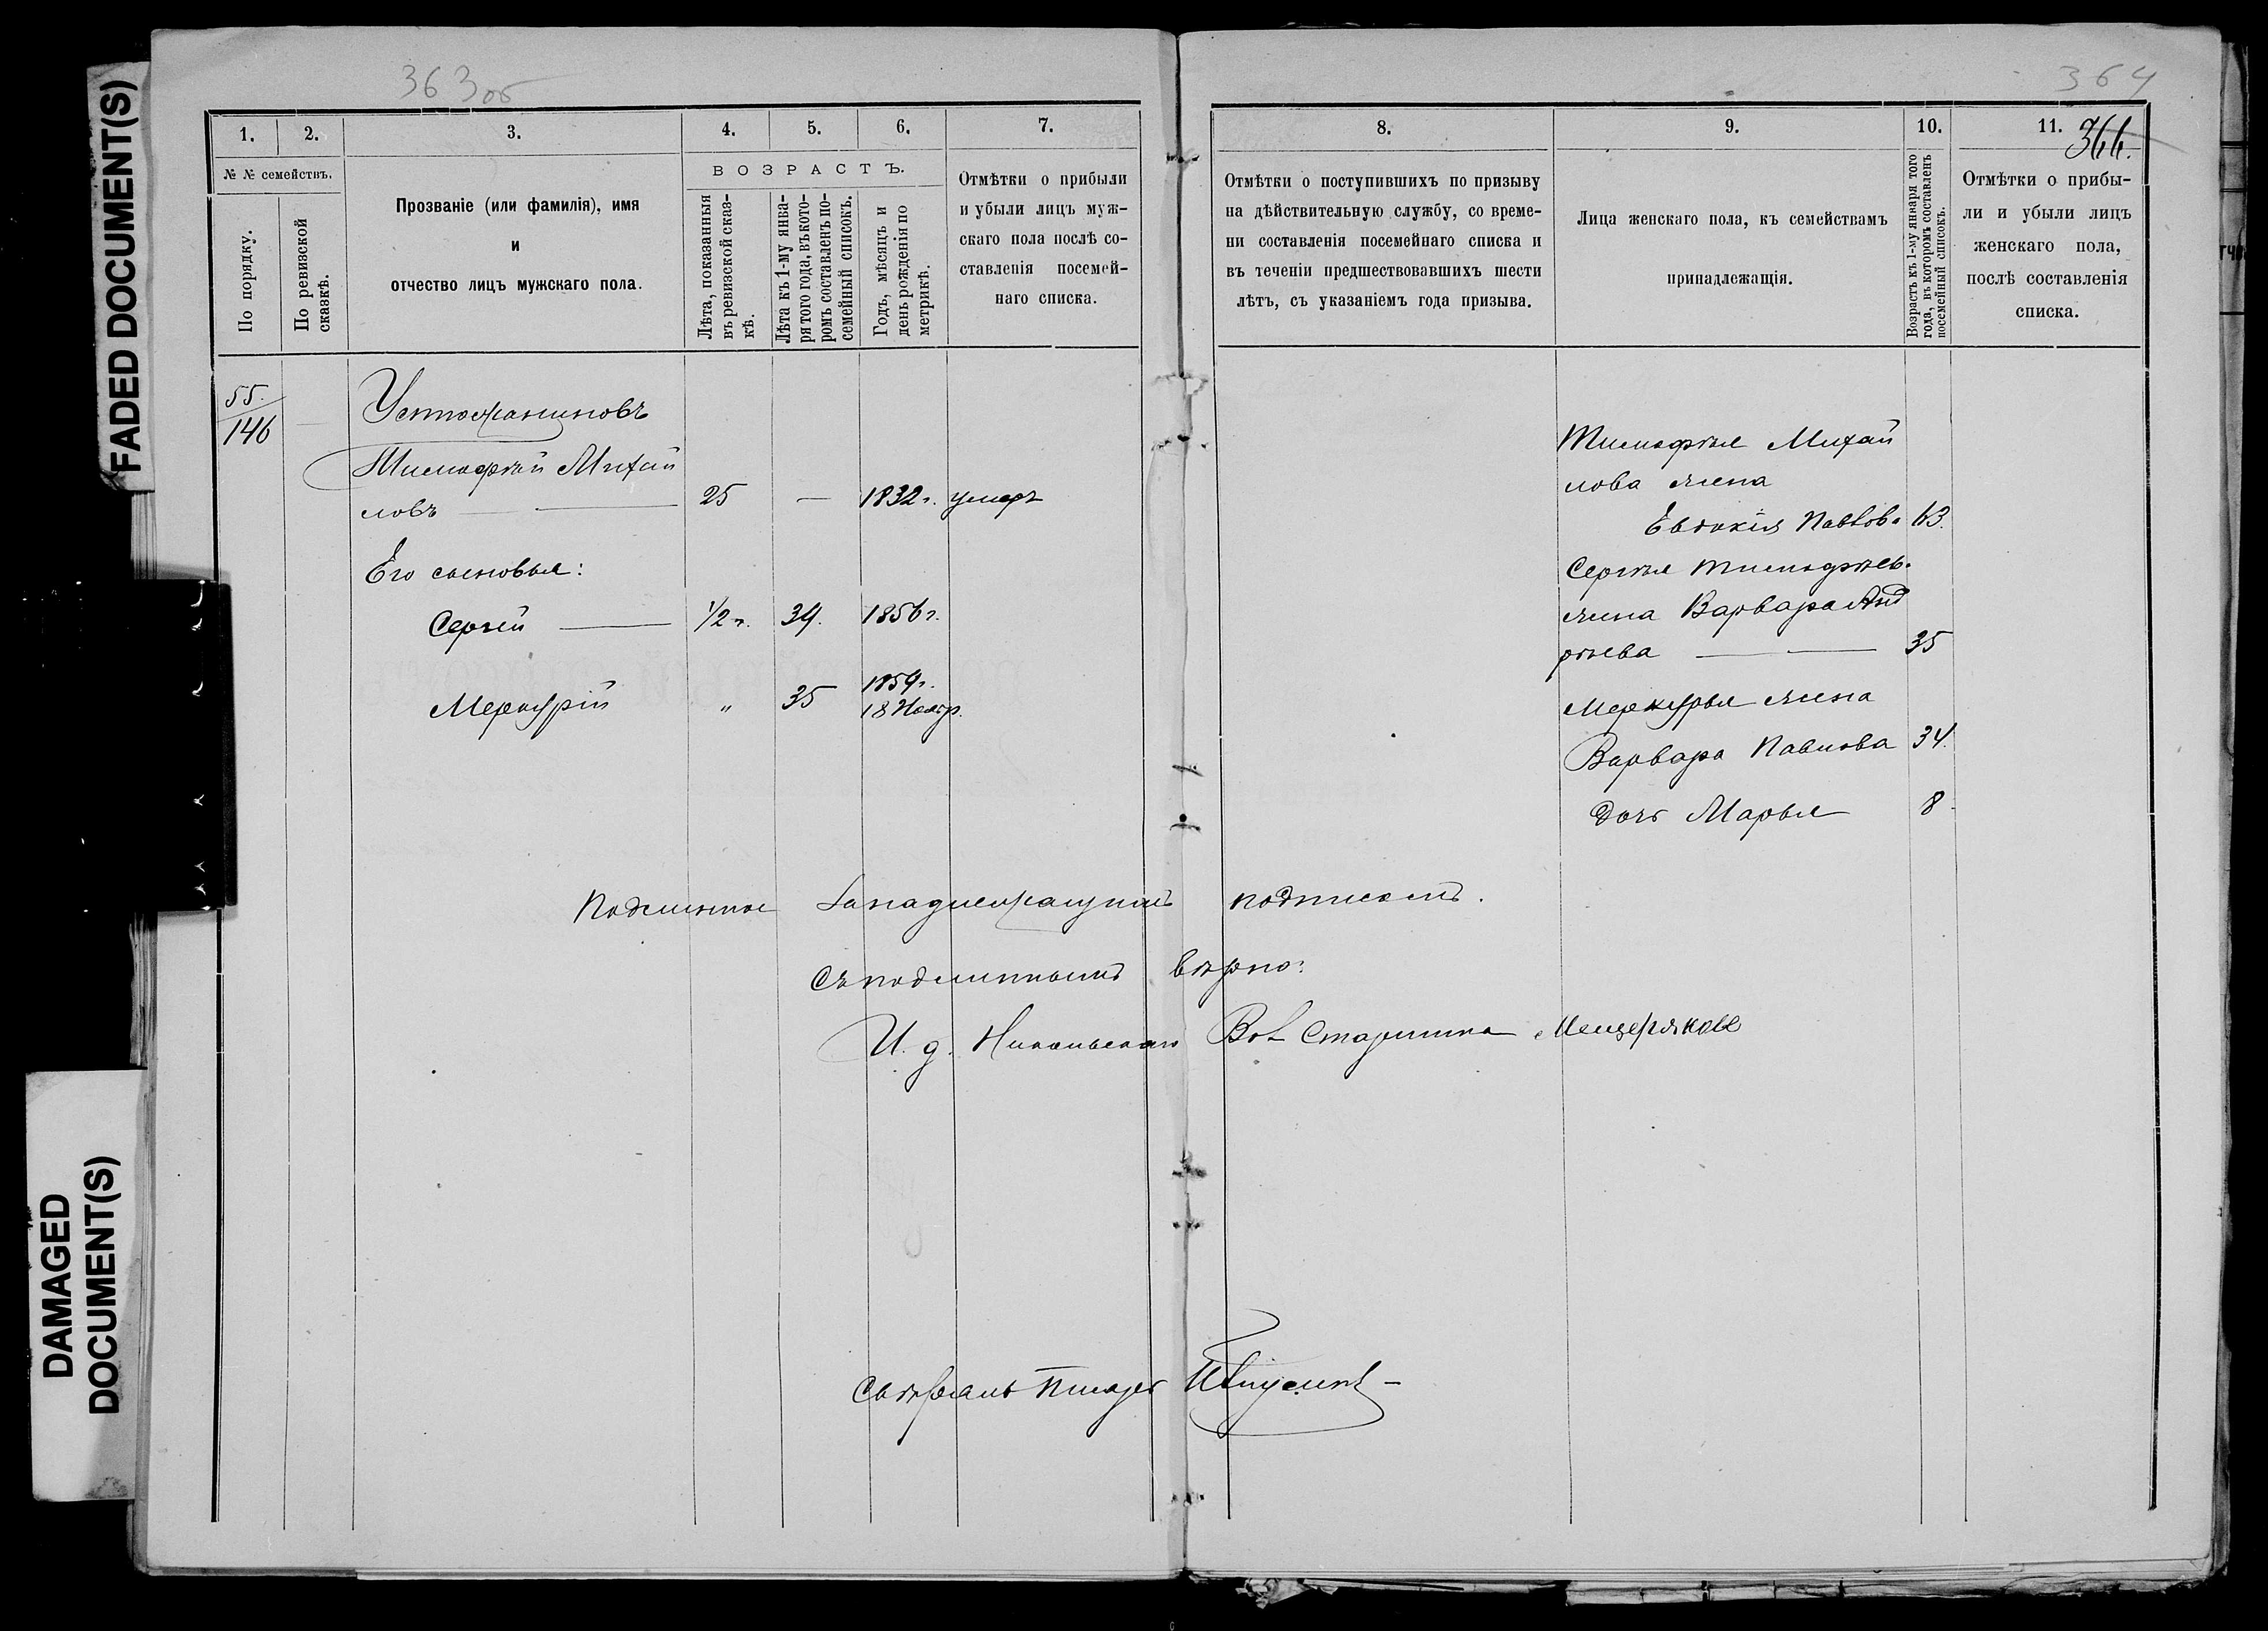 FADED DOCUMENT(S)
DAMAGED
DOCUMENT(S)
363об
1.
2.
3.
4.
5.
6.
7.
№ № семействъ.
По порядку.
По ревизской
сказкѣ.
Прозваніе (или фамилія), имя
и
отчество лицъ мужскаго пола.
ВОЗРАСТЪ.
Лѣта, показанныя
въ ревизской сказ-
кѣ.
Лѣта къ 1-му янва-
ря того года, въ кото-
ромъ составленъ по-
семейный списокъ.
Годъ, мѣсяцъ и
день рожденія по
метрикѣ.
Отмѣтки о прибыли
и убыли лицъ муж-
скаго пола послѣ со-
ставленія посемей-
наго списка.
55.
146
Устюжаниновъ
Тимофѣй Михай
ловъ
25 — 1832 г. умеръ
Его сыновья:
Сергѣй 1/2 г. 39. 1856 г.
Меркурій " 35 1859 г.
18 Ноябр.
364
8.
9.
10.
11.
366.
Отмѣтки о поступившихъ по призыву
на дѣйствительную службу, со време-
ни составленія посемейнаго списка и
въ теченіи предшествовавшихъ шести
лѣтъ, съ указаніемъ года призыва.
Лица женскаго пола, къ семействамъ
принадлежащія.
Возрастъ къ 1-му января того
года, въ которомъ составленъ
посемейный списокъ.
Отмѣтки о прибы-
ли и убыли лицъ
женскаго пола,
послѣ составленія
списка.
Тимофѣя Михай
лова жена
Евдокія Павлова 63.
Сергѣя Тимофѣев.
жена Варвара Анд
рѣева 35
Меркурья жена
Варвара Павлова 34.
дочь Марья 8
Подлинное за надлежащимъ подписомъ.
Съ подлиннымъ вѣрно:
И. д. Никольскаго Вол Старшина Мещеряков
Свѣрялъ Писарь